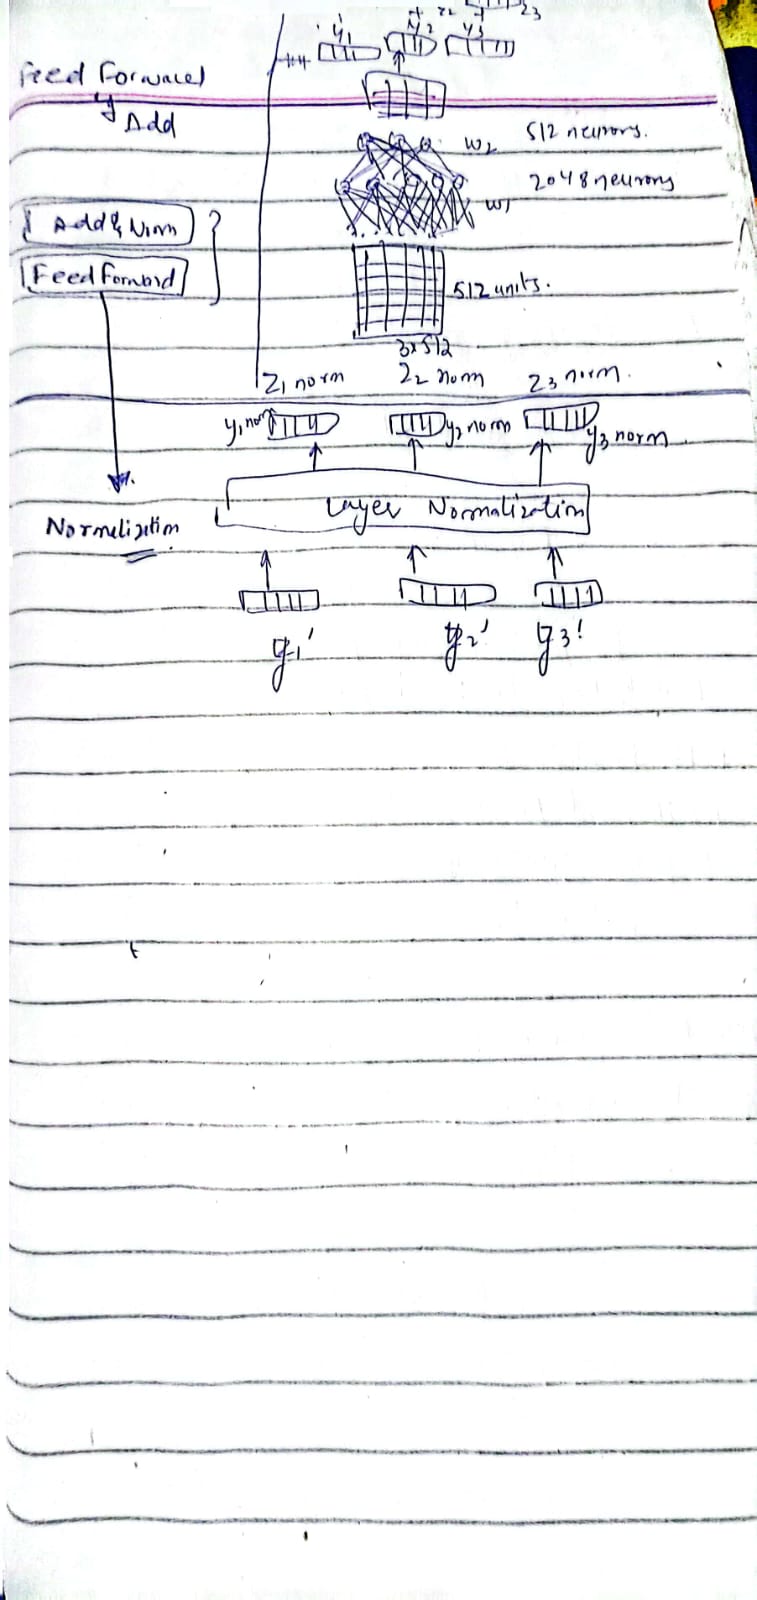 z2 z3
y1 y2 y3
Feed Forward
Add
W2 512 neurons.
2048 neurons
W1
Add & Norm
Feed Forward
512 units.
3x512
Z1 norm Z2 norm Z3 norm.
y1 norm y2 norm y3 norm
Layer Normalization
Normalization
y1' y2' y3'